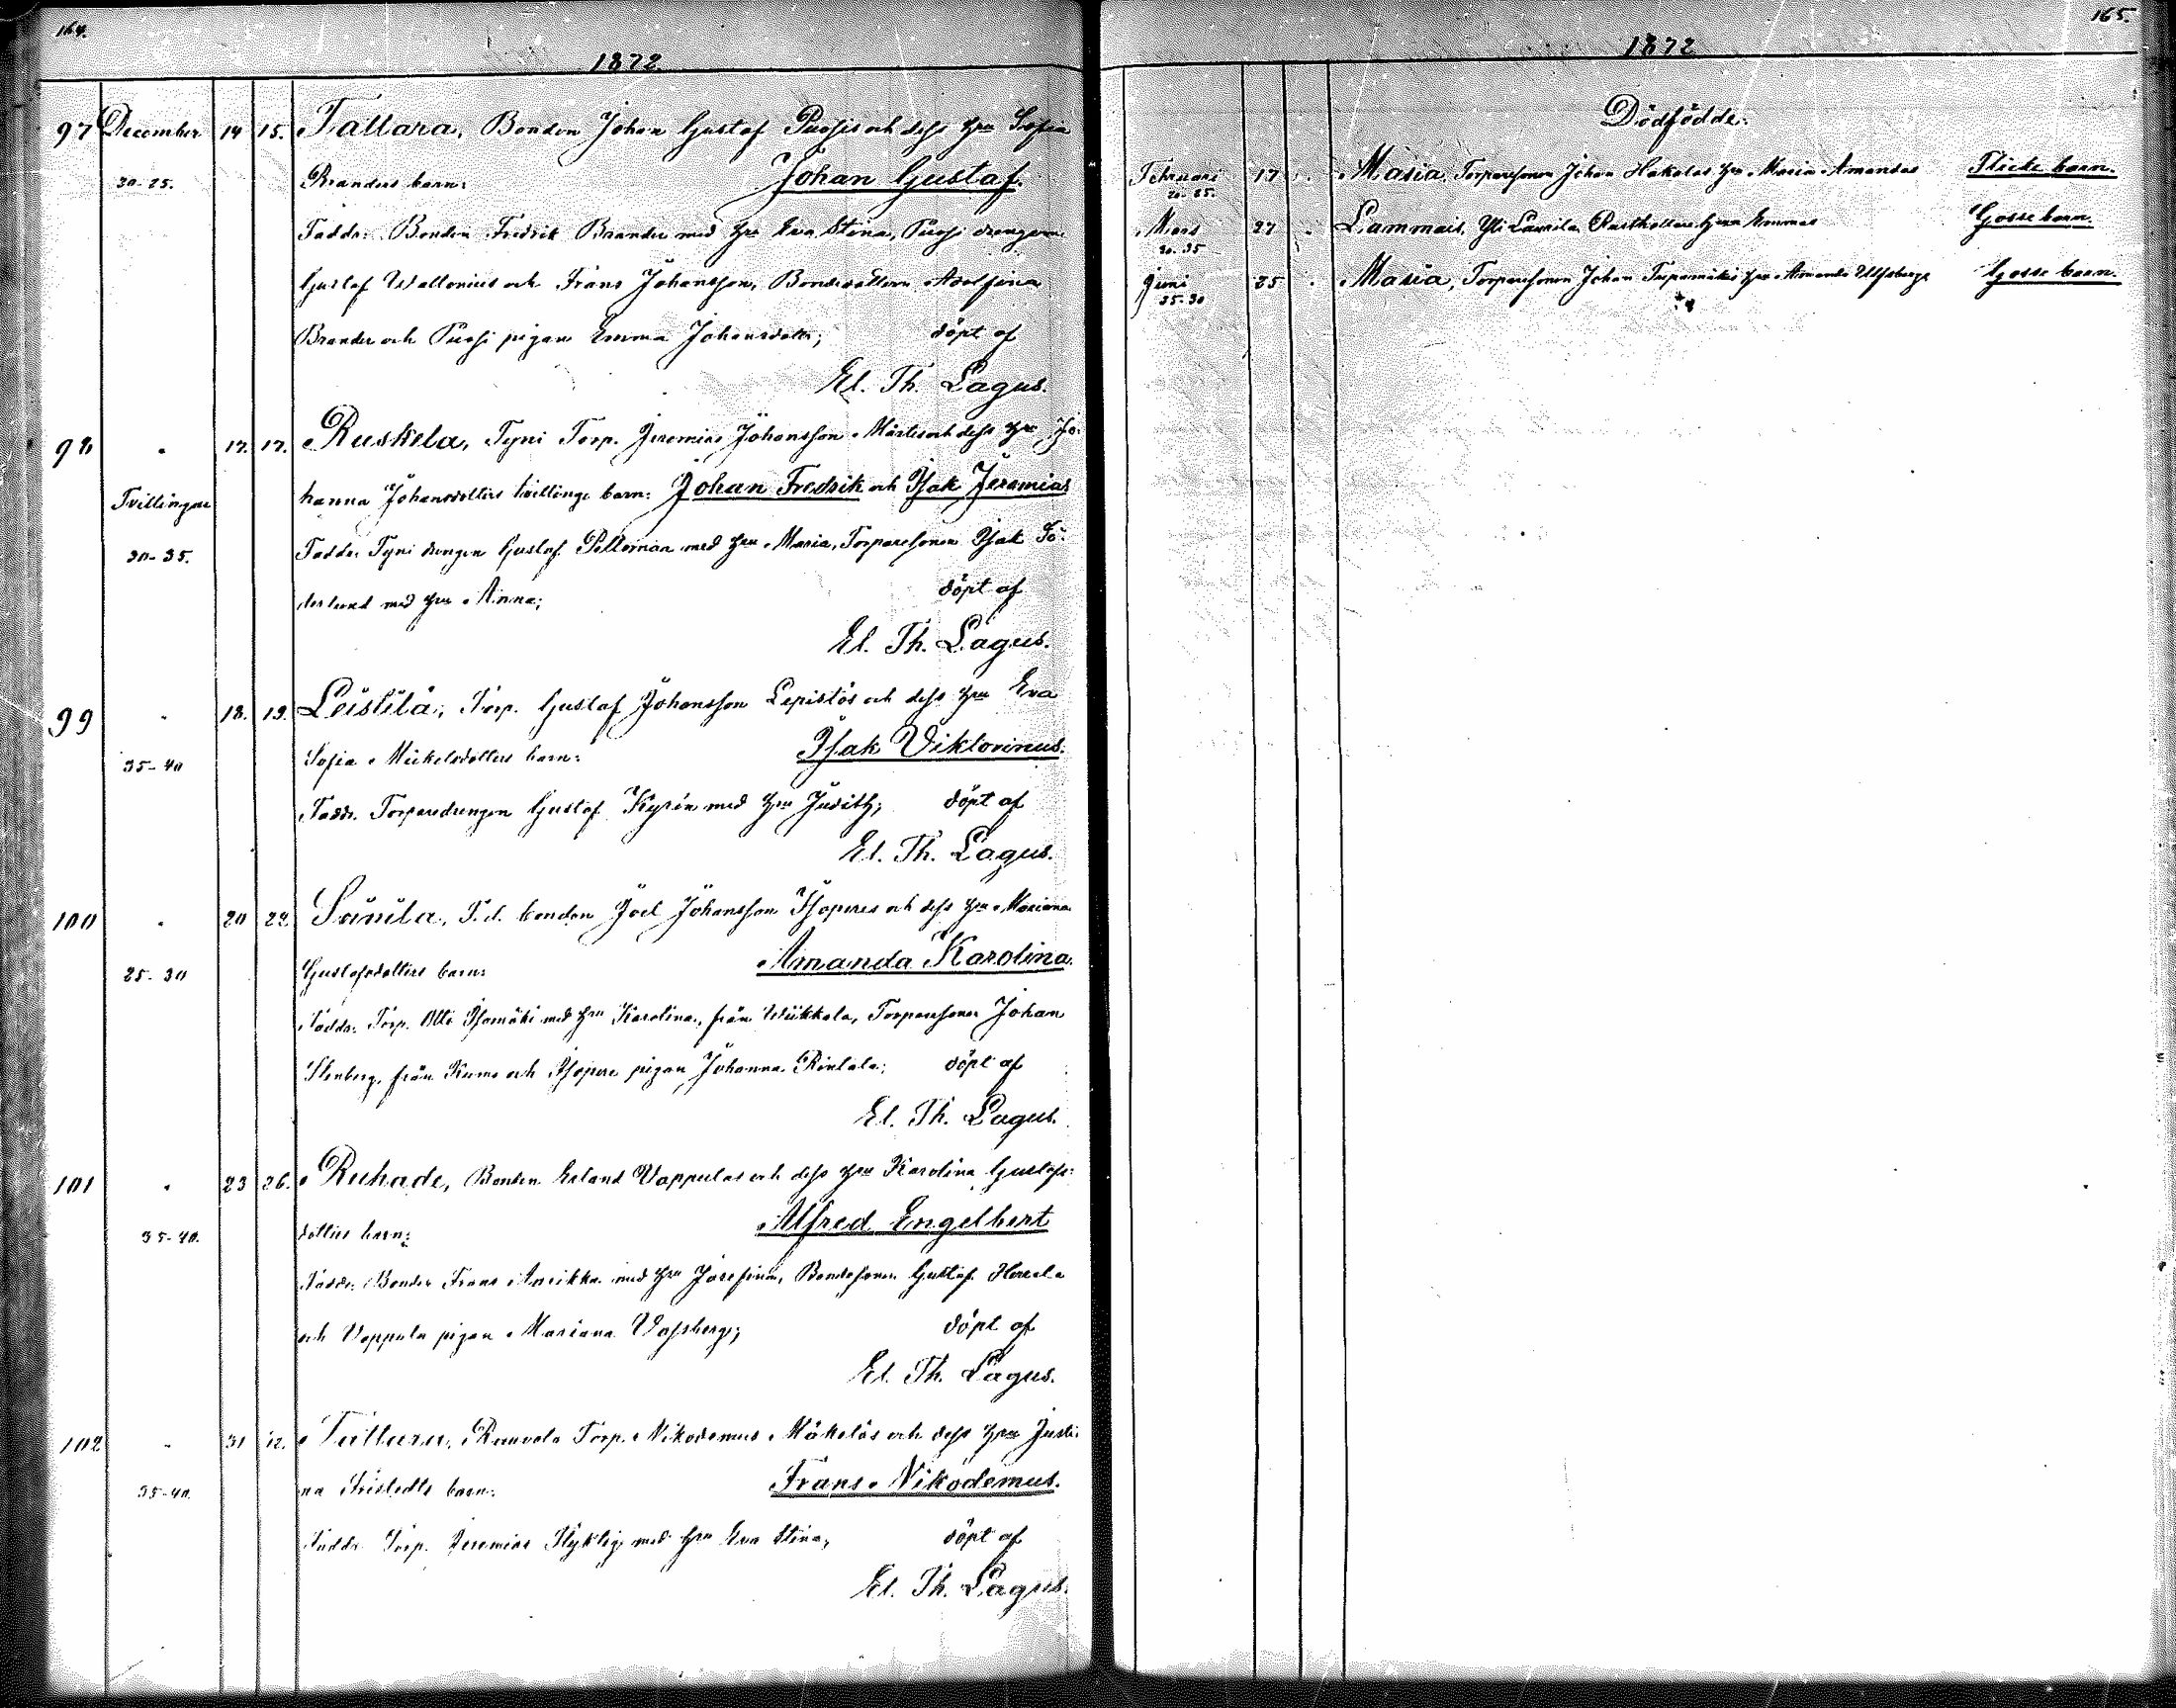 164.
1872
97 December 14 15. Tallara, Bonden Johan Gustaf Puosis och dess hru Sofia
20-25. Branders barn: Johan Gustaf.
Faddr. Bonden Fredrik Brander med hru Eva Stina, Puosi drengarne
Gustaf Wallonius och Frans Johansson, Bondedottern Adolfina
Brander och Puosi pigan Emma Johansdotter; döpt af
El. Th. Lagus.
98 " 17. 17. Ruskela, Tyni Torp. Jeremias Johansson Märtis och dess hru Jo-
hanna Johansdotters tvillinge barn: Johan Fredrik och Isak Jeremias
Tvillingar
30-35. Faddr. Tyni drengen Gustaf Pelloman med hru Maria, Torparesonen Isak Sö-
derlund med hru Anna; döpt af
El. Th. Lagus.
99 " 18. 19. Leistilä, Torp. Gustaf Johansson Lepistös och dess hru Eva
35-40 Sofia Mickelsdotters barn: Isak Viktorinus.
Faddr. Torparedrengen Gustaf Kyrén med hru Judith; döpt af
El. Th. Lagus.
100 " 20 22. Sunila, F.d. bonden Joel Johansson Isoperes och dess hru Mariana
25-30 Gustafsdotters barn: Amanda Karolina.
Faddr. Torp. Otto Isomäki med hru Karolina, från Wiikkala, Torparesonen Johan
Stenberg, från Kumo och Isopere pigan Johanna Rintala; döpt af
El. Th. Lagus.
101 " 23 26. Ruhade, Bonden Erland Vappulas och dess hru Karolina Gustafs-
35-40. dotters barn: Alfred Engelbert
Faddr. Bonden Frans Anrikka med hru Josefina, Bondesonen Gustaf
och Vappula pigan Mariana Vassberg; döpt af
El. Th. Lagus.
102 " 31 12. Tallara, Ranvola Torp. Nikodemus Mäkeläs och dess hru Justi-
35-40. na Fristedts barn: Frans Nikodemus.
Faddr. Torp. Jeremias Flyktig med hru Eva Stina; döpt af
El. Th. Lagus.
165.
1872
Dödfödde.
Februari 17 Masia, Torparesonen Johan Hakalas hru Maria Amandas Flicke barn.
20-25.
Mars 27 Lammais, Yli Laurila Rusthållare hru Emmas Gosse barn.
30-35
Juni 25 Masia, Torparesonen Johan hru Amanda Ulfsbergs Gosse barn.
25-30